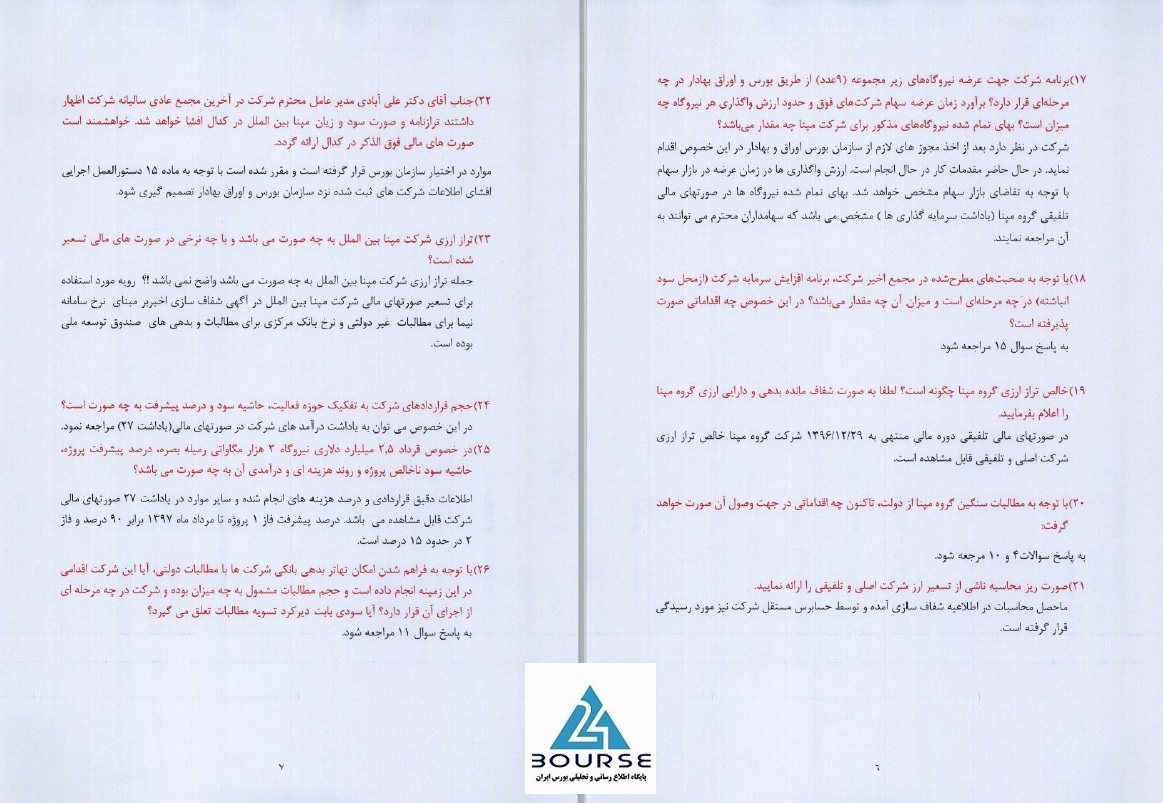 ۱۷)برنامه شرکت جهت عرضه نیروگاه‌های زیر مجموعه (۹عدد) از طریق بورس و اوراق بهادار در چه
مرحله‌ای قرار دارد؟ برآورد زمان عرضه سهام شرکت‌های فوق و حدود ارزش واگذاری هر نیروگاه چه
میزان است؟ بهای تمام شده نیروگاه‌های مذکور برای شرکت مپنا چه مقدار می‌باشد؟
شرکت در نظر دارد بعد از اخذ مجوز های لازم از سازمان بورس اوراق و بهادار در این خصوص اقدام
نماید. در حال حاضر مقدمات کار در حال انجام است. ارزش واگذاری ها در زمان عرضه در بازار سهام
با توجه به تقاضای بازار سهام مشخص خواهد شد. بهای تمام شده نیروگاه ها در صورتهای مالی
تلفیقی گروه مپنا (یاداشت سرمایه گذاری ها ) مشخص می باشد که سهامداران محترم می توانند به
آن مراجعه نمایند.
۱۸)با توجه به صحبت‌های مطرح‌شده در مجمع اخیر شرکت، برنامه افزایش سرمایه شرکت (ازمحل سود
انباشته) در چه مرحله‌ای است و میزان آن چه مقدار می‌باشد؟ در این خصوص چه اقداماتی صورت
پذیرفته است؟
به پاسخ سوال ۱۵ مراجعه شود
۱۹)خالص تراز ارزی گروه مپنا چگونه است؟ لطفا به صورت شفاف مانده بدهی و دارایی ارزی گروه مپنا
را اعلام بفرمایید.
در صورتهای مالی تلفیقی دوره مالی منتهی به ۱۳۹۶/۱۲/۲۹ شرکت گروه مپنا خالص تراز ارزی
شرکت اصلی و تلفیقی قابل مشاهده است.
۲۰)با توجه به مطالبات سنگین گروه مپنا از دولت، تاکنون چه اقداماتی در جهت وصول آن صورت خواهد
گرفت:
به پاسخ سوالات۴ و ۱۰ مرجعه شود.
۲۱)صورت ریز محاسبه ناشی از تسعیر ارز شرکت اصلی و تلفیقی را ارائه نمایید.
ماحصل محاسبات در اطلاعیه شفاف سازی آمده و توسط حسابرس مستقل شرکت نیز مورد رسیدگی
قرار گرفته است.
۶
۲۲)جناب آقای دکتر علی آبادی مدیر عامل محترم شرکت در آخرین مجمع عادی سالیانه شرکت اظهار
داشتند ترازنامه و صورت سود و زیان مپنا بین الملل در کدال افشا خواهد شد. خواهشمند است
صورت های مالی فوق الذکر در کدال ارائه گردد.
موارد در اختیار سازمان بورس قرار گرفته است و مقرر شده است با توجه به ماده ۱۵ دستورالعمل اجرایی
افشای اطلاعات شرکت های ثبت شده نزد سازمان بورس و اوراق بهادار تصمیم گیری شود.
۲۳)تراز ارزی شرکت مپنا بین الملل به چه صورت می باشد و با چه نرخی در صورت های مالی تسعیر
شده است؟
جمله تراز ارزی شرکت مپنا بین الملل به چه صورت می باشد واضح نمی باشد ؟! رویه مورد استفاده
برای تسعیر صورتهای مالی شرکت مپنا بین الملل در آگهی شفاف سازی اخیربر مبنای نرخ سامانه
نیما برای مطالبات غیر دولتی و نرخ بانک مرکزی برای مطالبات و بدهی های صندوق توسعه ملی
بوده است.
۲۴)حجم قراردادهای شرکت به تفکیک حوزه فعالیت، حاشیه سود و درصد پیشرفت به چه صورت است؟
در این خصوص می توان به یاداشت درآمد های شرکت در صورتهای مالی(یاداشت ۲۷) مراجعه نمود.
۲۵)در خصوص قرداد ۲٫۵ میلیارد دلاری نیروگاه ۳ هزار مگاواتی رمیله بصره، درصد پیشرفت پروژه،
حاشیه سود ناخالص پروژه و روند هزینه ای و درآمدی آن به چه صورت می باشد؟
اطلاعات دقیق قراردادی و درصد هزینه های انجام شده و سایر موارد در یاداشت ۲۷ صورتهای مالی
شرکت قابل مشاهده می باشد. درصد پیشرفت فاز ۱ پروژه تا مرداد ماه ۱۳۹۷ برابر ۹۰ درصد و فاز
۲ در حدود ۱۵ درصد است.
۲۶)با توجه به فراهم شدن امکان تهاتر بدهی بانکی شرکت ها با مطالبات دولتی، آیا این شرکت اقدامی
در این زمینه انجام داده است و حجم مطالبات مشمول به چه میزان بوده و شرکت در چه مرحله ای
از اجرای آن قرار دارد؟ آیا سودی بابت دیرکرد تسویه مطالبات تعلق می گیرد؟
به پاسخ سوال ۱۱ مراجعه شود.
۷
24
BOURSE
پایگاه اطلاع رسانی و تحلیلی بورس ایران